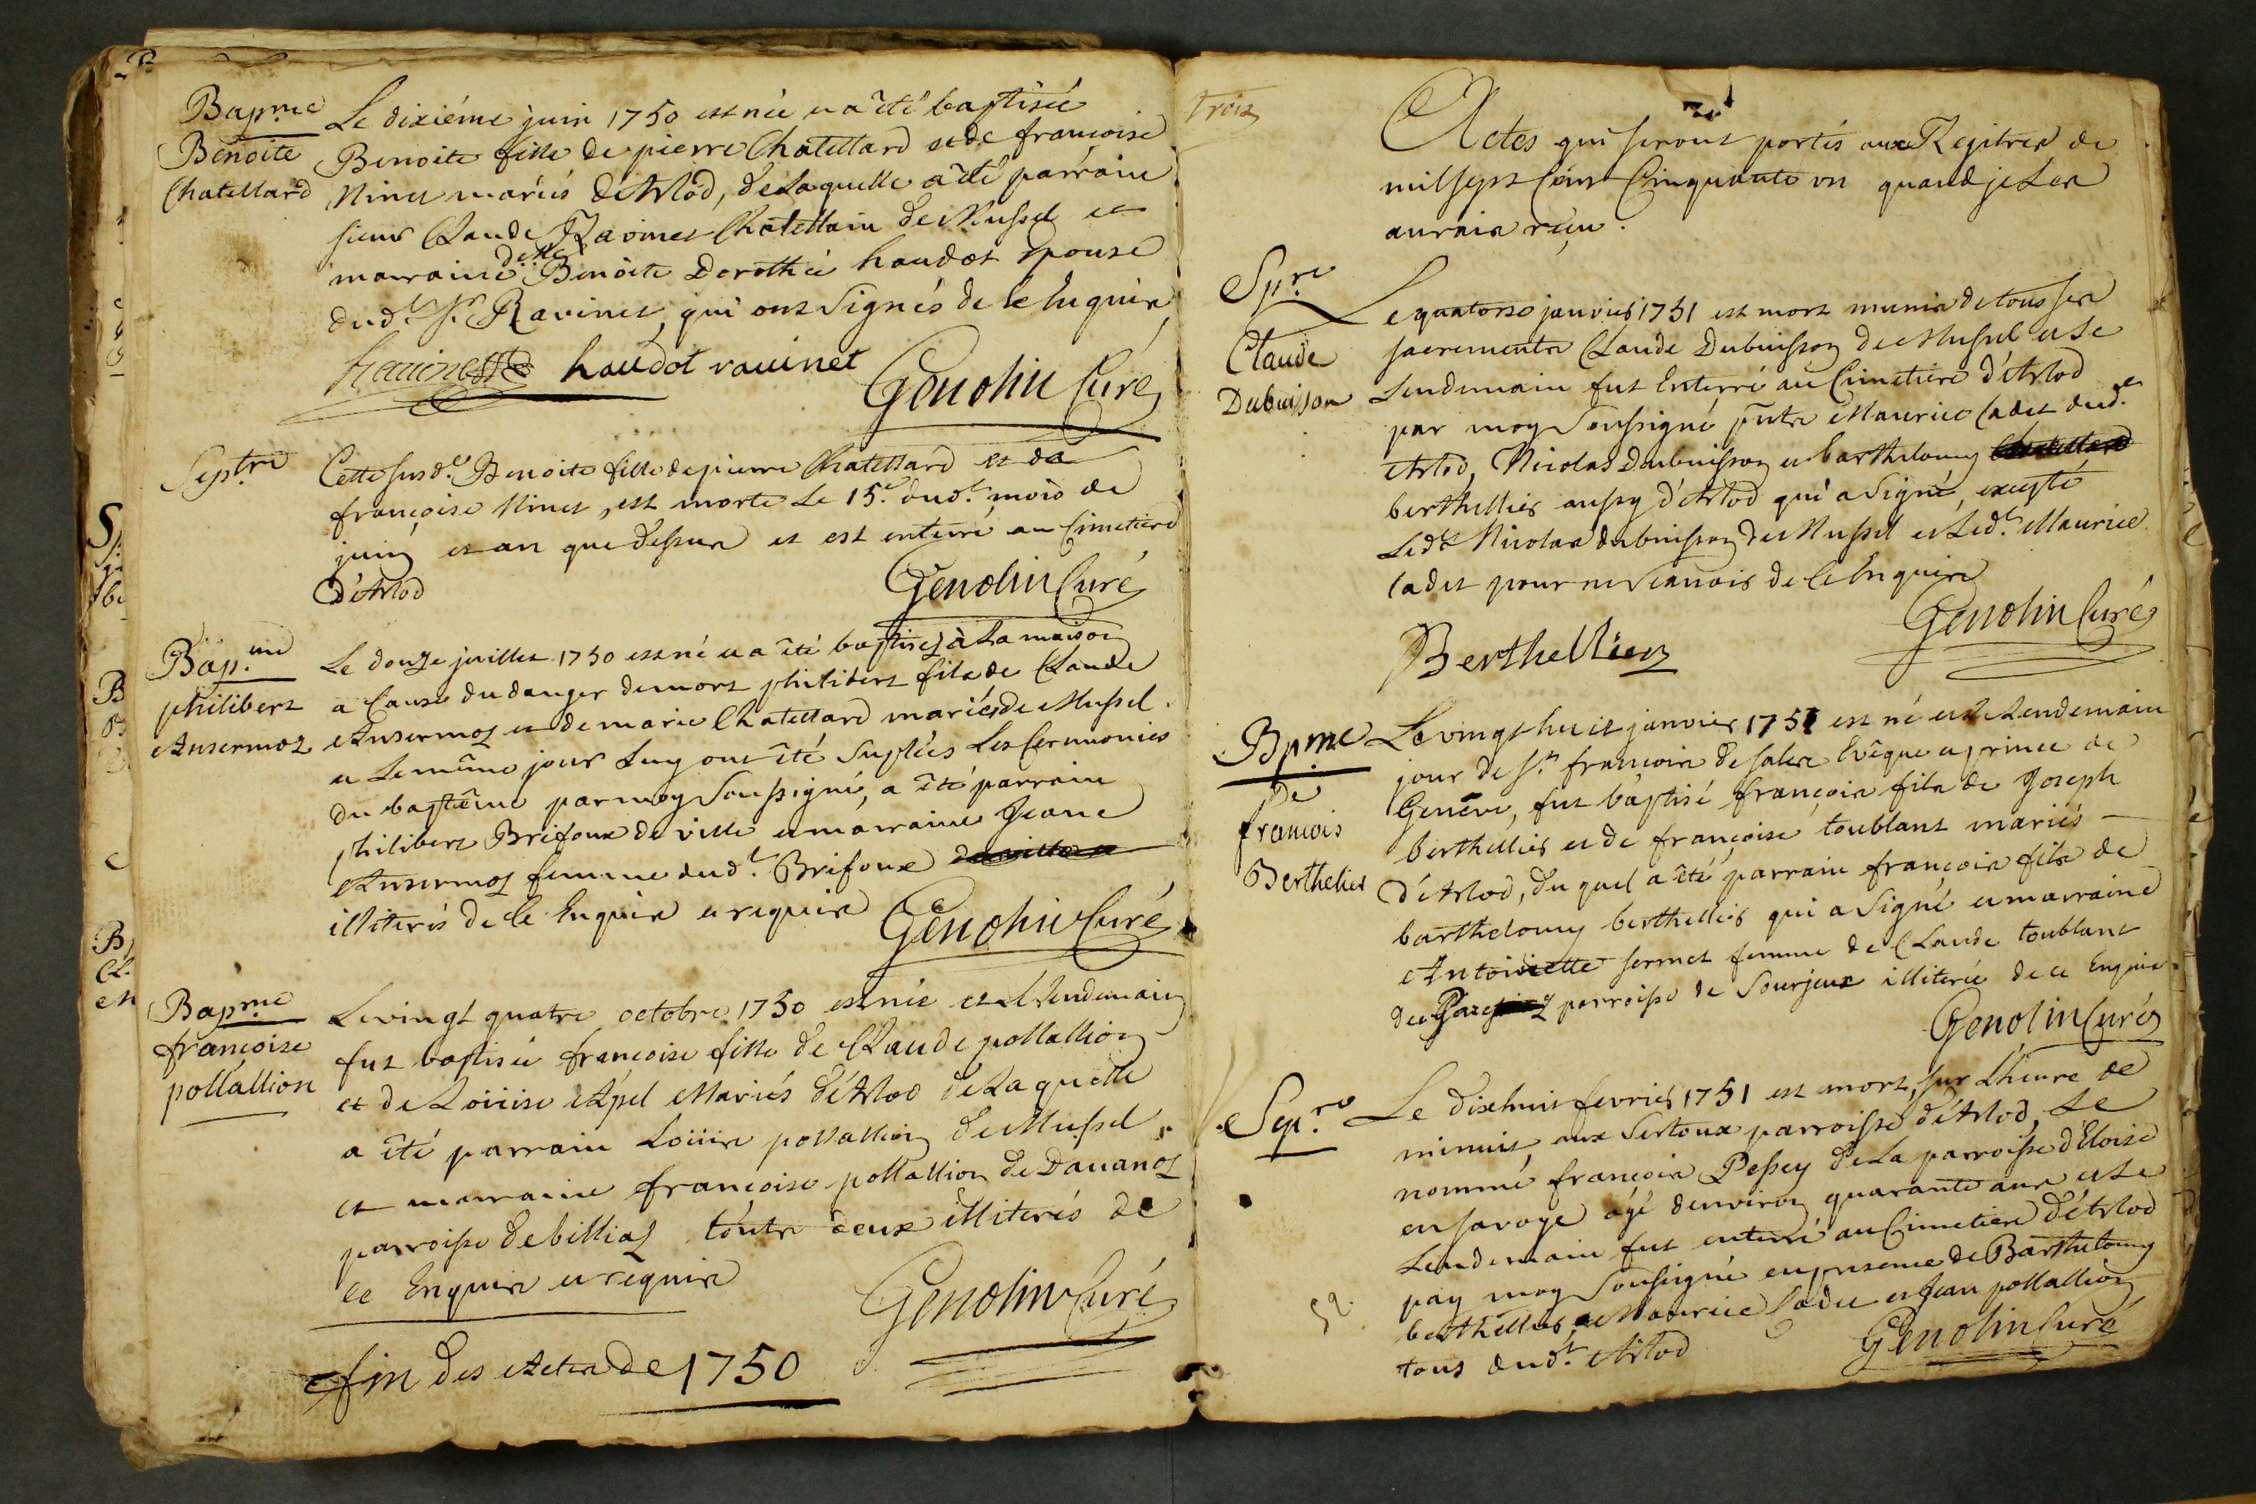 Bap.me
Benoite
Chatellard
Le dixiéme juin 1750 est née et a êté baptisée
Benoite fille de pierre Chatellard et de françoise
Ninet mariés d'Arlod, de Laquelle a êté parrain
sieur Claude Ravinet Chatellain de Mussel et
marraine D.elle Benoite Dorothée haudot Epouse
dud.t S.r Ravinet, qui ont Signés de ce Enquis
haudot ravinet
Genolin Curé
Sep.tre
Cette susd.e Benoite fille de pierre Chatellard et de
françoise Ninet, est morte Le 15.e dud.t mois de
juin et an que dessus et est enterré au Cimetiere
d'Arlod
Genolin Curé
Bap.me
philibert
Ansermoz
Le douze juillet 1750 est né et a êté baptisé à La maison
a Cause du danger de mort philibert fils de Claude
Ansermoz et de marie Chatellard mariés de Mussel.
et Le même jour Luy ont êté Suplées Les Ceremonies
du baptême par moy Soussigné, a êté parrain
philibert Brifoux de ville et marraine Jeane
Ansermoz femme dud.t Brifoux
illiterés de Ce Enquis et requis
Genolin Curé
Bap.me
françoise
pollallion
Le vingt quatre octobre 1750 est née et Le Lendemain
fut baptisée françoise fille de Claude pollallion
et de Loüise Apel Mariés d'Arlod de Laquelle
a êté parrain Loüis pollallion de Mussel,
et marraine françoise pollallion de Davanoz
parroisse de billiaz touts deux illiterés de
ce Enquis et requis
Genolin Curé
fin des Actes de 1750
Trois
Actes qui seront portés aux Regitres de
mil sept Cent Cinquante un quand je Les
aurais reçu.
Sp.re
Claude
Dubuisson
Le quatorse janvier 1751 est mort munis de tous ses
sacrements Claude Dubuisson de Mussel et Le
Lendemain fut Enterré au Cimetiere d'Arlod
par moy Soussigné pnts Maurice Cadet dud.t
Arlod, Nicolas Dubuisson et barthelomy
berthellier aussy d'Arlod qui a Signé, excepté
Led.t Nicolas dubuisson de Mussel et Led.t Maurice
Cadet pour ne Scauois de Ce Enquis
Genolin Curé
Berthellier
Bpme
De
francois
Berthelier
Le vingt huit janvier 1751 est né et Le Lendemain
jour de S.t francois de Sales Evêque et prince de
Genéve, fut baptisé françois fils de Joseph
berthellier et de françoise toublant mariés
d'Arlod, du quel a êté parrain françois fils de
barthelomy berthellier qui a Signé et marraine
Antoinette sermet femme de Claude toublant
de parroisse de Sourjoux illiterée de ce Enquise
Genolin Curé
Sep.re
Le dixhuit fevrier 1751 est mort, sur L'heure de
minuit, aux Sertoux parroisse d'Arlod, Le
nommé françois Pessey de La parroisse d'Eloise
en Savoye âgé d'environ quarante ans et Le
Lendemain fut enterré au Cimetiere d'Arlod
pay moy Soussigné en presence de Barthelomy
berthellier, Maurice Cadet et Jean pollallion
tous dud.t Arlod
Genolin Curé